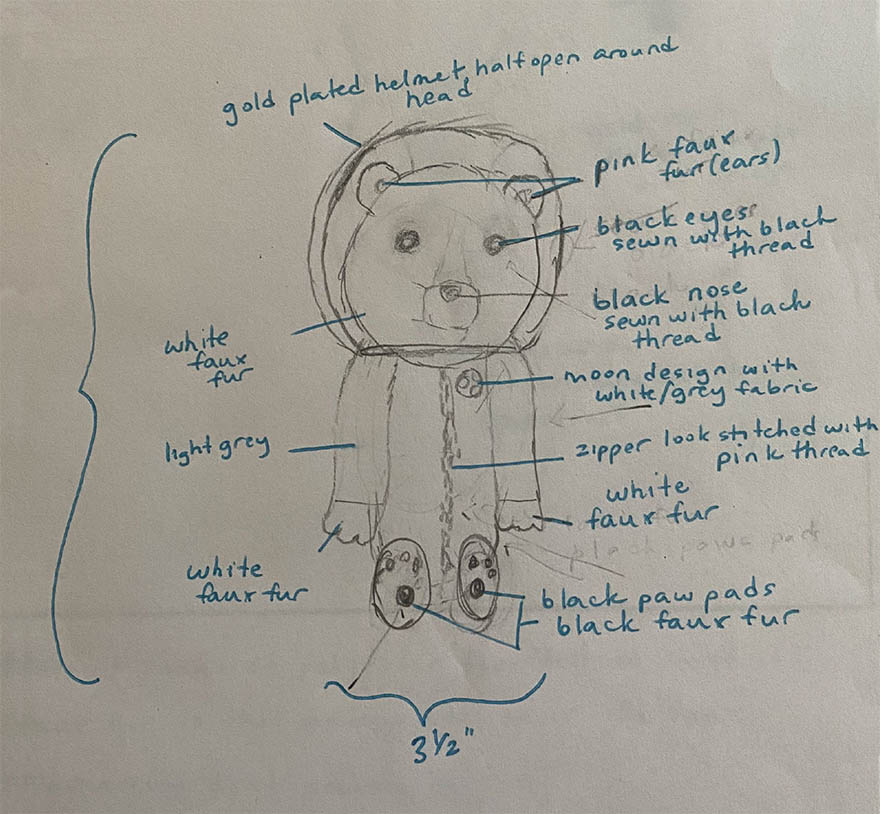 gold plated helmet, half open around
head
pink faux
fur (ears)
black eyes
sewn with black
thread
black nose
sewn with black
thread
white
faux
fur
moon design with
white/grey fabric
light grey
zipper look stitched with
pink thread
white
faux fur
black paws pads
white
faux fur
black paw pads
black faux fur
3 1/2"